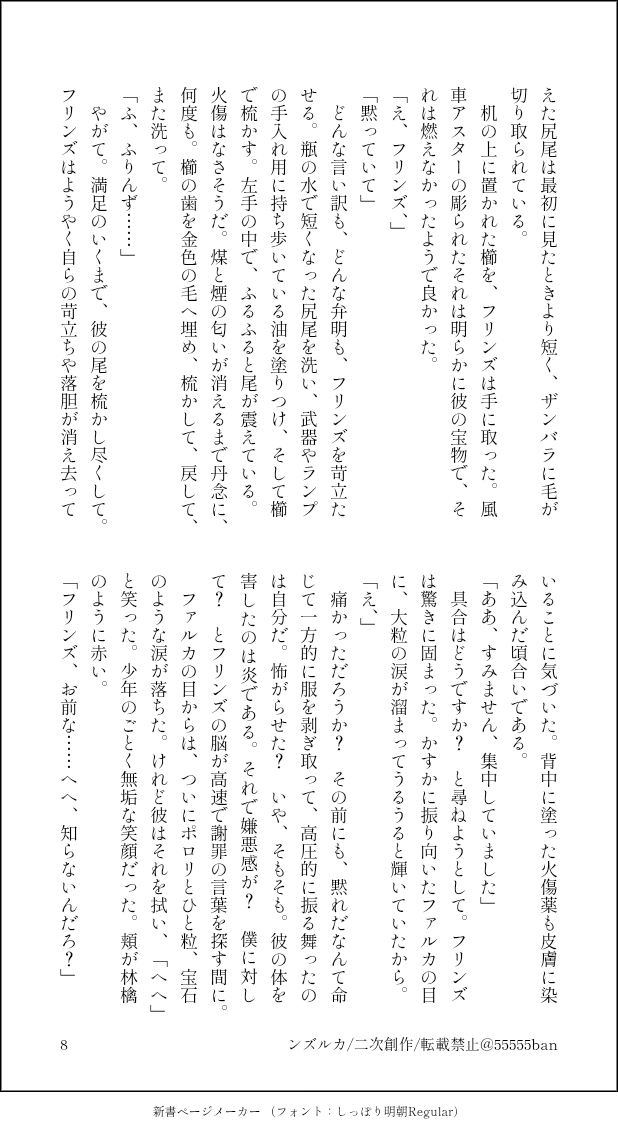 えた尻尾は最初に見たときより短く、ザンバラに毛が
切り取られている。
　机の上に置かれた櫛を、フリンズは手に取った。風
車アスターの彫られたそれは明らかに彼の宝物で、そ
れは燃えなかったようで良かった。
「え、フリンズ、」
「黙っていて」
　どんな言い訳も、どんな弁明も、フリンズを苛立た
せる。瓶の水で短くなった尻尾を洗い、武器やランプ
の手入れ用に持ち歩いている油を塗りつけ、そして櫛
で梳かす。左手の中で、ふるふると尾が震えている。
火傷はなさそうだ。煤と煙の匂いが消えるまで丹念に、
何度も。櫛の歯を金色の毛へ埋め、梳かして、戻して、
また洗って。
「ふ、ふりんず……」
　やがて。満足のいくまで、彼の尾を梳かし尽くして。
フリンズはようやく自らの苛立ちや落胆が消え去って
いることに気づいた。背中に塗った火傷薬も皮膚に染
み込んだ頃合いである。
「ああ、すみません、集中していました」
　具合はどうですか？　と尋ねようとして。フリンズ
は驚きに固まった。かすかに振り向いたファルカの目
に、大粒の涙が溜まってうるうると輝いていたから。
「え、」
　痛かっただろうか？　その前にも、黙れだなんて命
じて一方的に服を剥ぎ取って、高圧的に振る舞ったの
は自分だ。怖がらせた？　いや、そもそも。彼の体を
害したのは炎である。それで嫌悪感が？　僕に対し
て？　とフリンズの脳が高速で謝罪の言葉を探す間に。
　ファルカの目からは、ついにポロリとひと粒、宝石
のような涙が落ちた。けれど彼はそれを拭い、「へへ」
と笑った。少年のごとく無垢な笑顔だった。頬が林檎
のように赤い。
「フリンズ、お前な……へへ、知らないんだろ？」
8
ンズルカ/二次創作/転載禁止@55555ban
新書ページメーカー （フォント：しっぽり明朝Regular）